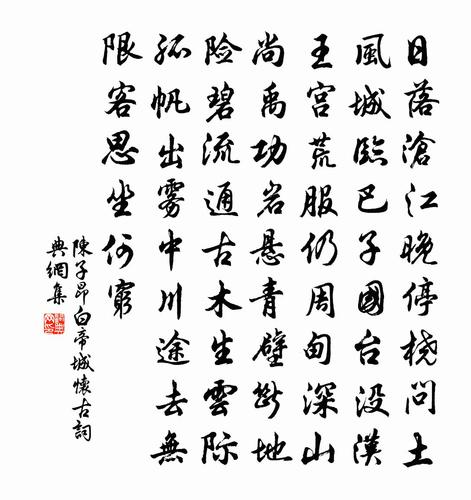 日落滄江晚停橈問土
風城臨巴子國台没漢
王宫荒服仍周甸深山
尚禹功岩悬青壁断地
险碧流通古木生雲际
孤帆出雾中川途去無
限客思坐何窮
陳子昂白帝城懷古詞
典網集